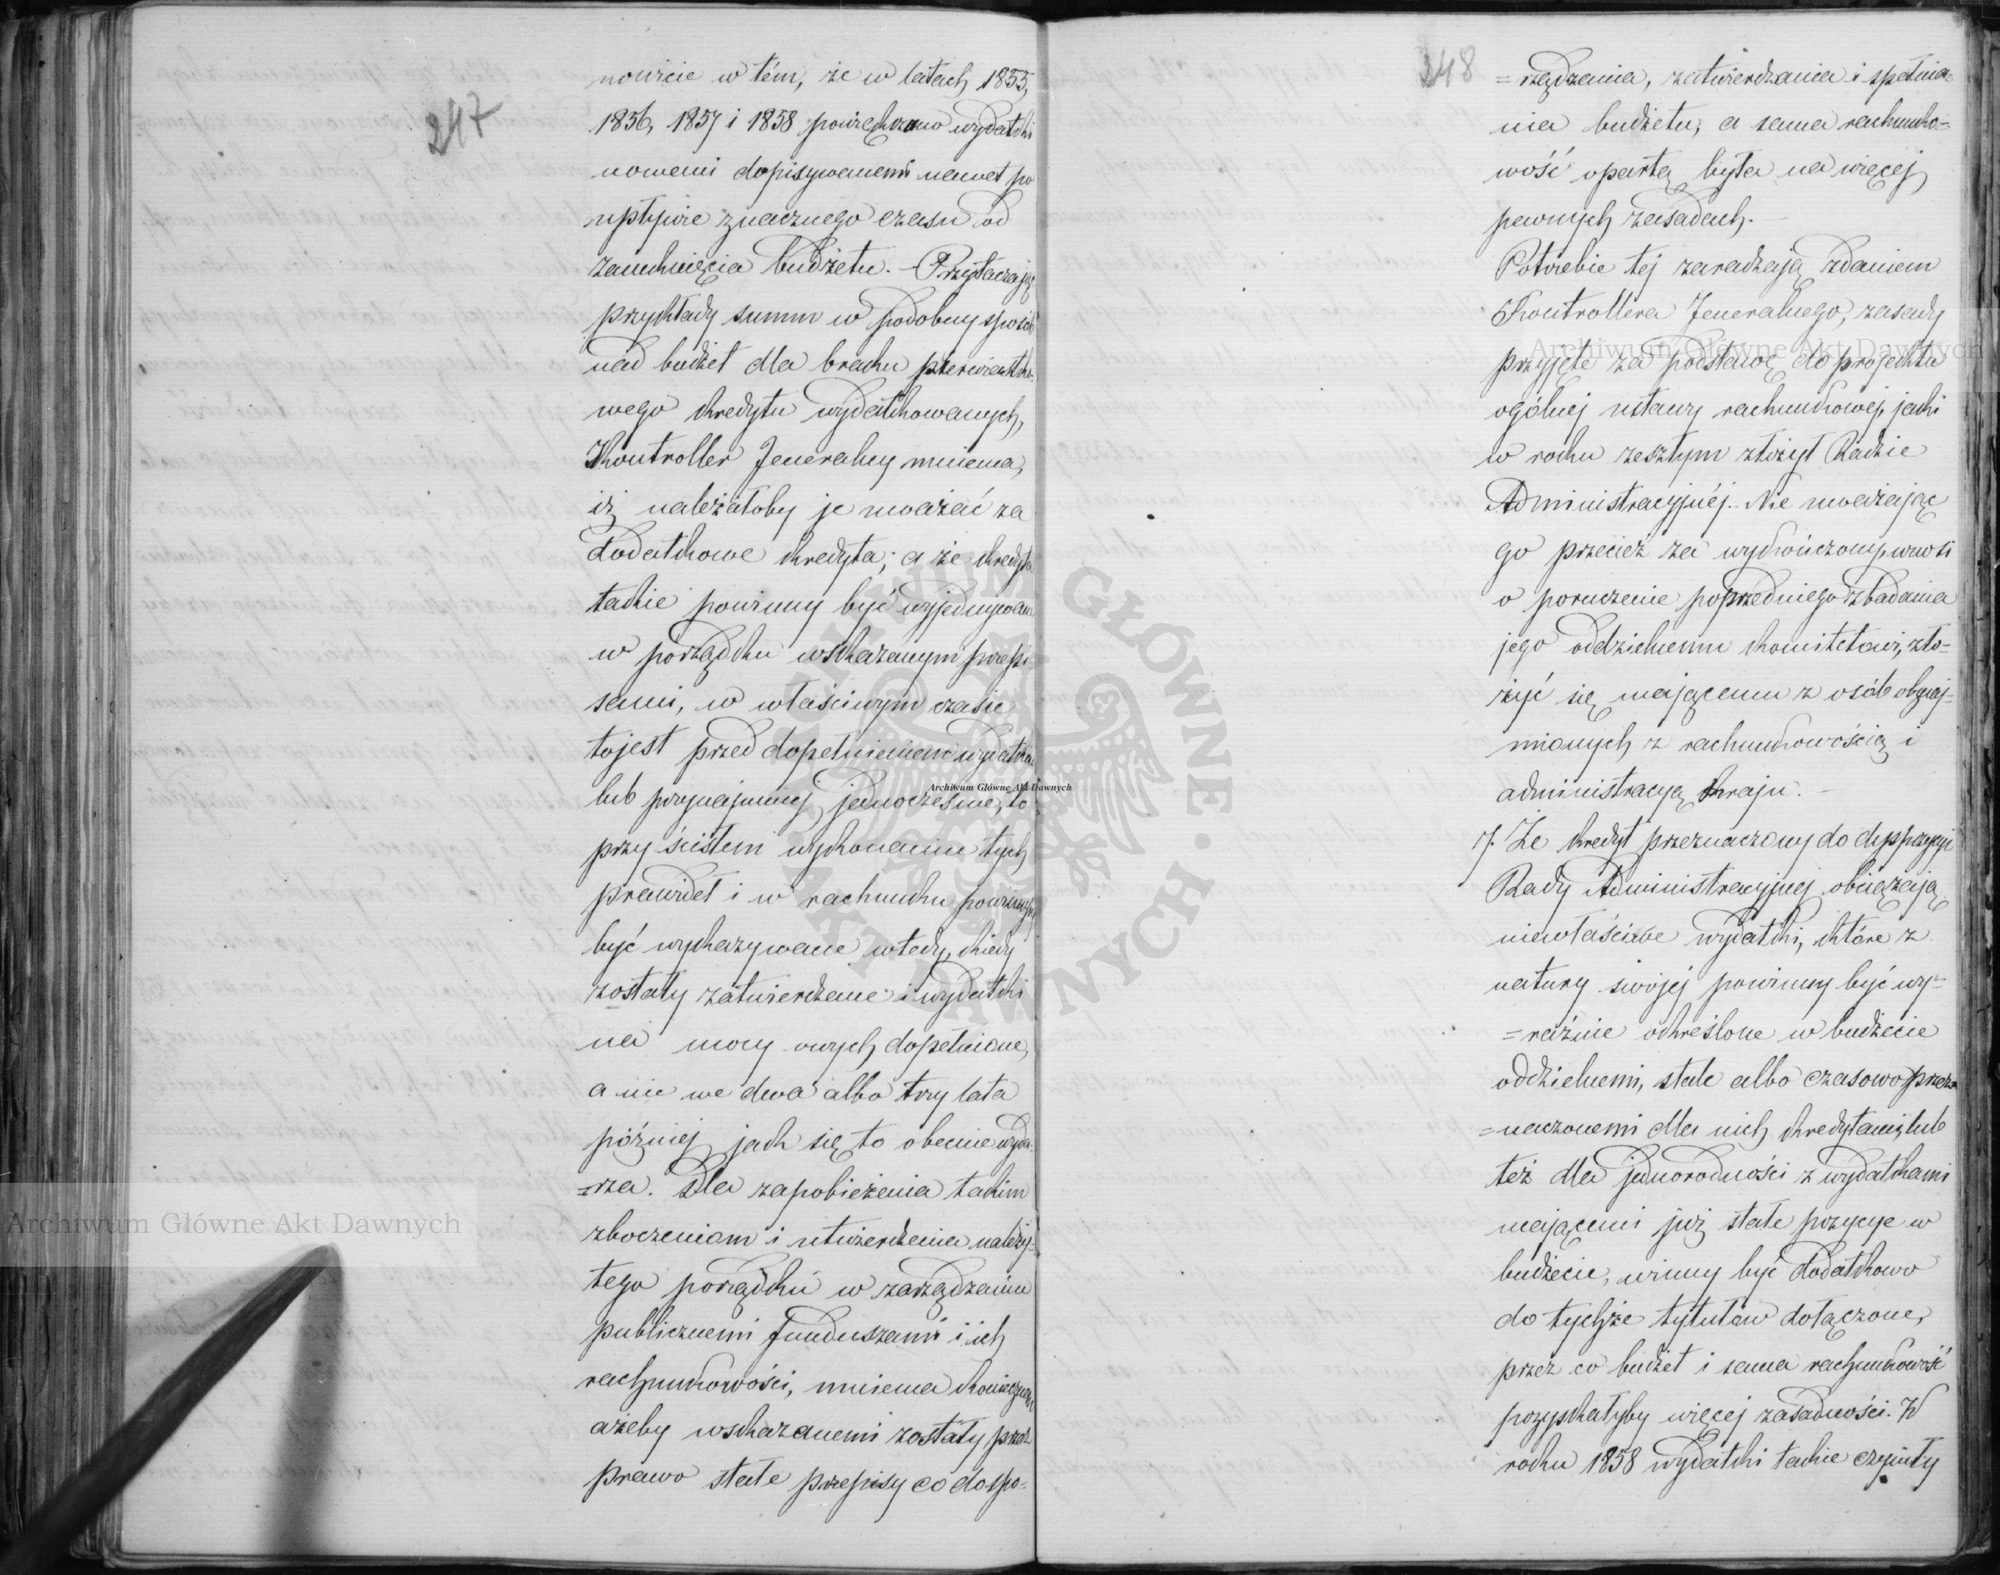 247
nowicie w tém, że w latach 1855,
1856, 1857 i 1858 powiększano wydatki
nowemi dopisywanemi nawet po
upływie znacznego czasu od
zamknięcia budżetu. – Przytaczając
przykłady summ w podobny sposób
nad budżet dla braku pierwiastko-
wego kredytu wydatkowanych,
Kontroller Jeneralny mniema,
iż należałoby je uważać za
dodatkowe kredyta; a że kredyta
takie powinny być wyjednywane
w porządku wskazanym przepi-
sami, w właściwym czasie
tojest przed dopełnieniem wydatku
lub przynajmniej jednocześnie, to
przy ścisłem wykonaniu tych
prawideł i w rachunku powinny
być wykazywane wtedy, kiedy
zostały zatwierdzone i wydatki
na mocy onych dopełnione,
a nie we dwa albo trzy lata
później jak się to obecnie wyda-
=rza. Dla zapobieżenia takim
zboczeniom i utwierdzenia należy-
tego porządku w zarządzaniu
publicznemi funduszami i ich
rachunkowości, mniema koniecznem
ażeby wskazanemi zostały przez
prawo stałe przepisy co do spo-
248
=rządzenia, zatwierdzania i spełnia-
nia budżetu, a sama rachunko=
wość opartą była na więcej
pewnych zasadach. –
Potrzebie tej zaradzają zdaniem
Kontrollera Jeneralnego, zasady
przyjęte za podstawę do projektu
ogólnej ustawy rachunkowej, jaki
w roku zeszłym złożył Radzie
Administracyjnéj. Nie uważając
go przecież za wykończony, wnosi
o poruczenie poprzedniego zbadania
jego oddzielnemu komitetowi, zło-
żyć się mającemu z osób obznaj-
mionych z rachunkowością i
administracyą kraju. –
7. Że kredyt przeznaczony do dyspozycyi
Rady Administracyjnej obciążają
niewłaściwe wydatki, które z
natury swojej powinny być wy=
=raźnie określone w budżecie
oddzielnemi, stale albo czasowo prze-
=naczonemi dla nich kredytami, lub
też dla jednorodności z wydatkami
mającemi już stałe pozycye w
budżecie, winny być dodatkowo
do tychże tytułów dołączone,
przez co budżet i sama rachunkowość
pozyskałyby więcej zasadności. W
roku 1858 wydatki takie czyniły
Archiwum Główne Akt Dawnych
Archiwum Główne Akt Dawnych
Archiwum Główne Akt Dawnych
ARCHIWUM GŁÓWNE · AKT DAWNYCH ·